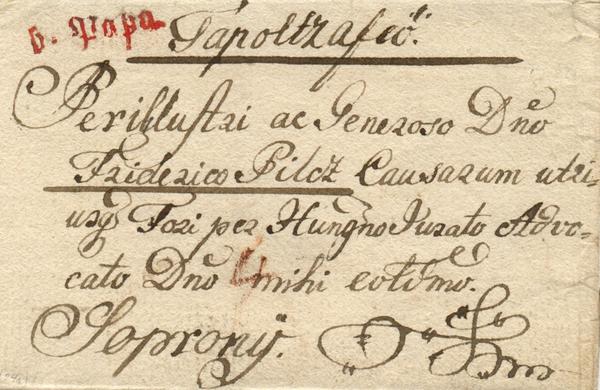 v. Papa
Tápoltzafeő.
Perillustri ac Generoso Dno
Friderico Pilcz Causarum utri-
usq Fori per Hungno Jurato Advo-
cato Dno mihi coldmo.
Soprony.